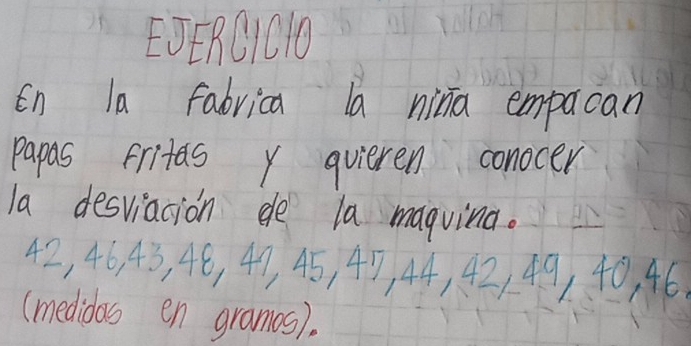 EJERCICIO
En la fabrica la niña empacan
papas fritas y quieren conocer
la desviación de la maquina.
42, 46, 43, 48, 45, 47, 44, 42, 49, 40, 46.
(medidas en gramos).